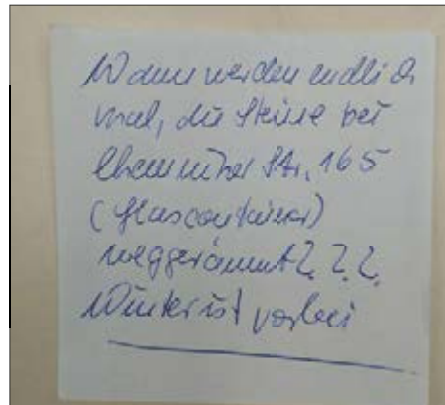 Wann werden endlich
mal, die Steine bei
Chemnitzer Str. 165
(Glascontainer)
weggeräumt???
Winter ist vorbei